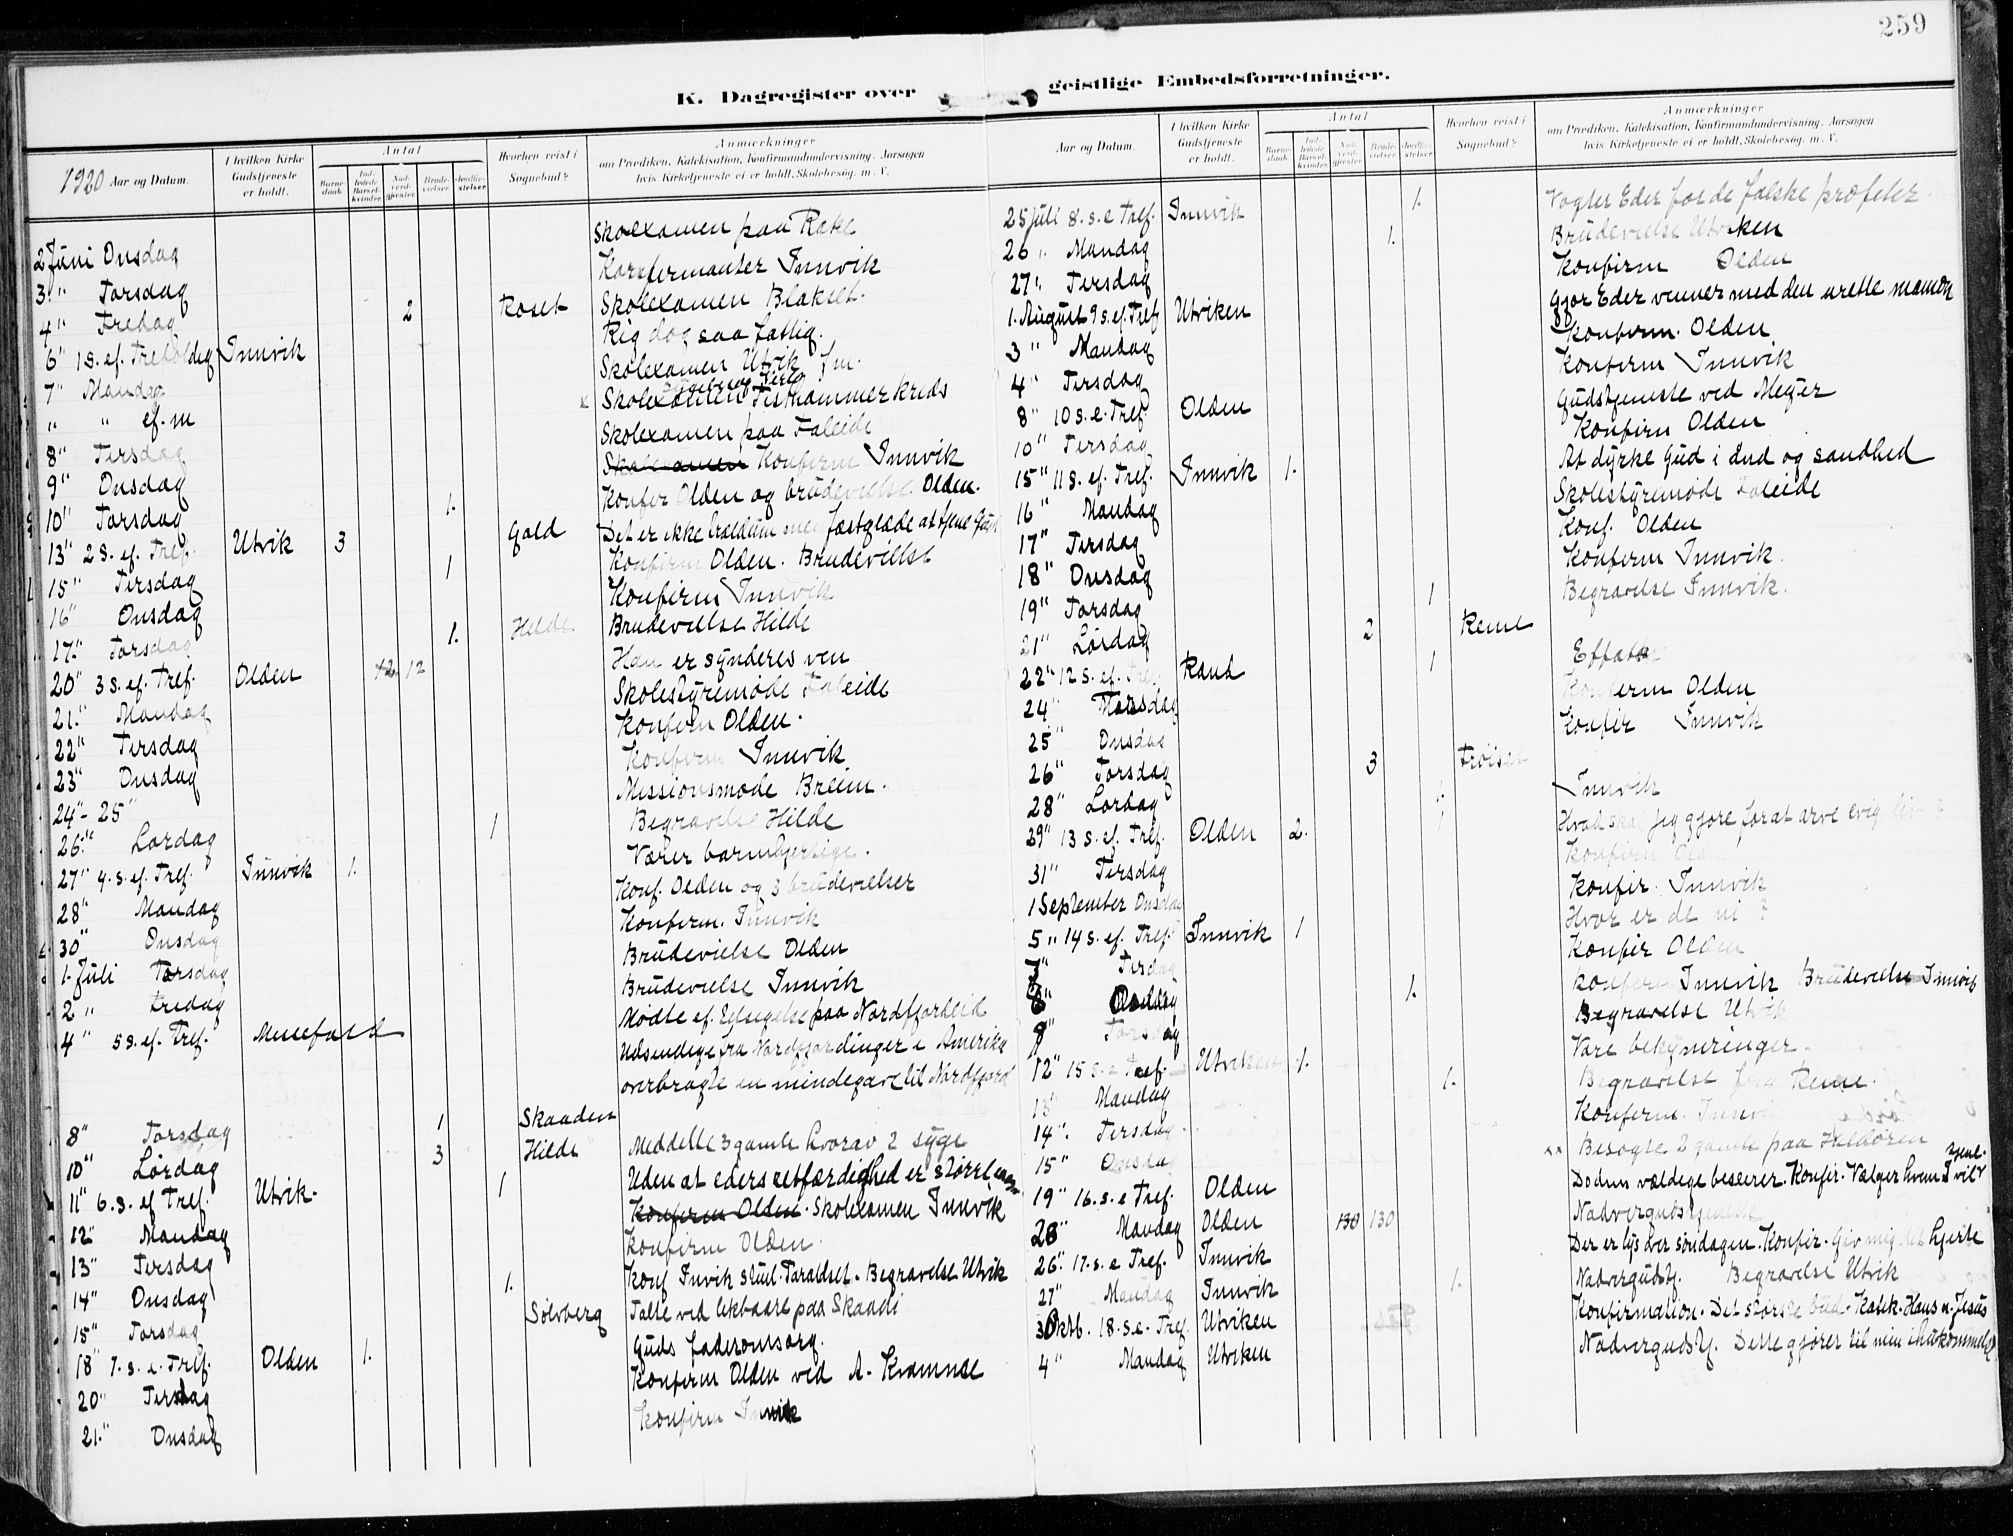 259
K. Dagregister over geistlige Embedsforretninger.
1920 Aar og Datum.
I hvilken Kirke Gudstjeneste er holdt.
Antal
Barnedaab.
Indledede Barselkvinder.
Nadverdgjester.
Brudevielser
Jordfæstelser
Hvorhen reist i Sognebud?
Anmærkninger
om Prædiken, Katekisation, Konfirmandundervisning, Aarsagen
hvis Kirketjeneste ei er holdt, Skolebesøg. m. V.
2 Juni Onsdag Skolexamen paa Rake
3 " Torsdag Konfermanter Innvik
4 " Fredag 2 Roset Skolexamen Blakset.
6 " 1 s. ef. Trefoldig Innvik Rig dog saa fattig.
7 " Mandag Skolexamen Utvik
" " ef. m Skolexamen Tisthammer kreds
8 " Tirsdag Skolexamen paa Faleide
9 " Onsdag Konferm Innvik
10 " Torsdag 1. Konfer Olden og brudevielse Olden.
13 " 2 s. ef. Tref. Utvik 3 Gald Det er ikke
15 " Tirsdag 1 Konfirm Olden. Brudevielse
16 " Onsdag Konfirm Innvik
17 " Torsdag 1. Hilde. Brudevielse Hilde
20 " 3 s. ef. Tref. Olden 12 12 Han er synderes ven
21. " Mandag Skolestyremøde Faleide
22 " Tirsdag Konfirm Olden.
23 " Onsdag Konferm Innvik.
24 - 25 " Missionsmøde Breim.
26. " Lørdag 1 Begravelse Hilde
27 " 4. s. ef. Tref. Innvik 1. Værer barmhjertige.
28 " Mandag Konf. Olden og 3 brudevielser
30 " Onsdag Konferm. Innvik
1. Juli Torsdag Brudevielse Olden
2 " Fredag Brudevielse Innvik
4 " 5 s. ef. Tref. Messefald Mødte ef. paa Nordfjordeid
Udsendige fra Nordfjordinger i Amerika
overbragte en mindegave til Nordfjord
8 " Torsdag 1 Skaaden
10 " Lørdag 3 Hilde Meddelte 3 gamle hvorav 2 syge
11 " 6. s. ef Tref. Utvik. 1 Uden at eders retfærdighed er større
12 " Mandag Konferm Olden. Skolexamen Innvik
13 " Tirsdag Konfirm Olden.
14 " Onsdag 1. Konf Invik Begravelse Utvik
15 " Torsdag Sølvberg Talte ved likbaare paa Skaadi
18 " 7. s. e. Tref. Olden 1. Guds faderomsorg.
20 " Tirsdag Konferm Olden ved A. Kvamme
21. " Onsdag Konfirm Innvik
Aar og Datum.
I hvilken Kirke Gudstjeneste er holdt.
Antal
Barnedaab.
Indledede Barselkvinder.
Nadverdgjester
Brudevielser
Jordfæstelser
Hvorhen reist i Sognebud?
Anmærkninger
om Prædiken, Katekisation, Konfirmandundervisning, Aarsagen
hvis Kirketjeneste ei er holdt, Skolebesøg. m. V.
25 juli 8. s. e Tref. Innvik 1. Vogter Eder for de falske profeter
26 " Mandag 1. Brudevielse Utviken
27 " Tirsdag Konfirm Olden
1. August 9 s. ef. Tref Utviken Gjør Eder venner med den urette mamon
3 " Mandag Konferm. Olden
4 " Tirsdag Konferm Innvik
8 " 10 s. e. Tref Olden Gudstjeneste ved Meyer
10 " Tirsdag Konfirm Olden
15 " 11 s. ef. Tref. Innvik 1. At dyrke Gud i aand og sandhed
16 " Mandag Skolestyremøde Faleide
17 " Tirsdag Konf. Olden
18 " Onsdag Konferm Innvik.
19 " Torsdag 1 Begravelse Innvik.
21 " Lørdag 2 Reme
22 " 12 s. ef. Tref. Rand 1 Effata
24 " Tirsdag Konferm Olden
25 " Onsdag Konfir Innvik
26 " Torsdag 3 Frøiset
28 " Lørdag 1. Innvik
29 " 13 s. ef. Tref. Olden 2. 1 Hvad skal jeg gjøre for at arve evig liv?
31 " Tirsdag Konfirm Olden
1 September Onsdag Konfir. Innvik
5 " 14 s. ef. Tref. Innvik 1 Hvor er de ni?
7 " Tirsdag Konfir Olden
8 " Onsdag 1. Konferm Innvik Brudevielse Innvik
9 " Torsdag Begravelse Utvik
12 " 15 s. e Tref. Utviken 1. Vare bekymringer.
13 " Mandag 1. Begravelse fra Reme.
14 ". Tirsdag. Konferm. Innvik
15 " Onsdag Besøgte 2 gamle paa
19 " 16. s. e Tref. Olden Døden vældige beseirer. Konfir. Vælger hvem I vil tjene.
20 " Mandag Olden 130 130 Nadvergudstjeneste
26. " 17. s. e Tref. Innvik Der er lys over søndagen. Konfir. Giv mig dit hjerte
27 " Mandag Innvik 1. Nadvergudstj. Begravelse Utvik
3 Oktb. 18. s. e. Tref. Utviken Konfirmation. Det største bud. Katek. Hans n. Jesus
4 " Mandag Utviken Nadvergudstj. Dette gjører til min ihukommelse